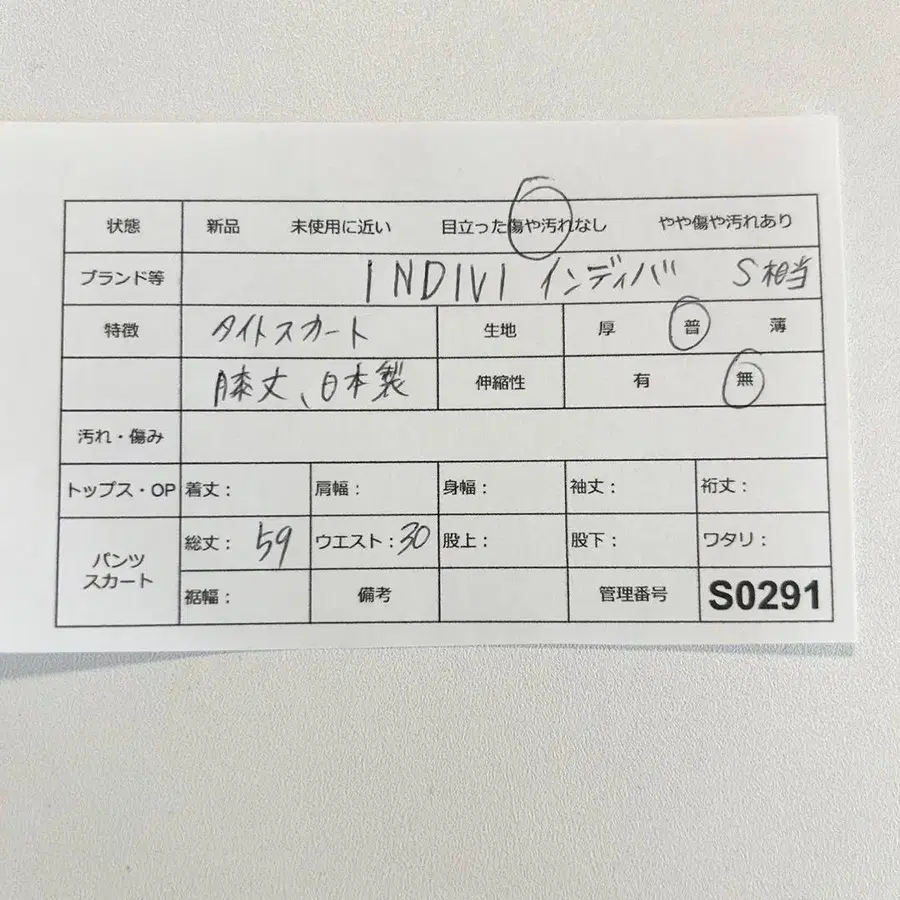 状態 新品 未使用に近い 目立った傷や汚れなし やや傷や汚れあり
ブランド等 INDIVI インディバ S相当
特徴 タイトスカート 生地 厚 普 薄
膝丈、日本製 伸縮性 有 無
汚れ・傷み
トップス・OP 着丈： 肩幅： 身幅： 袖丈： 裄丈：
パンツ スカート 総丈： 59 ウエスト：30 股上： 股下： ワタリ：
裾幅： 備考 管理番号 S0291